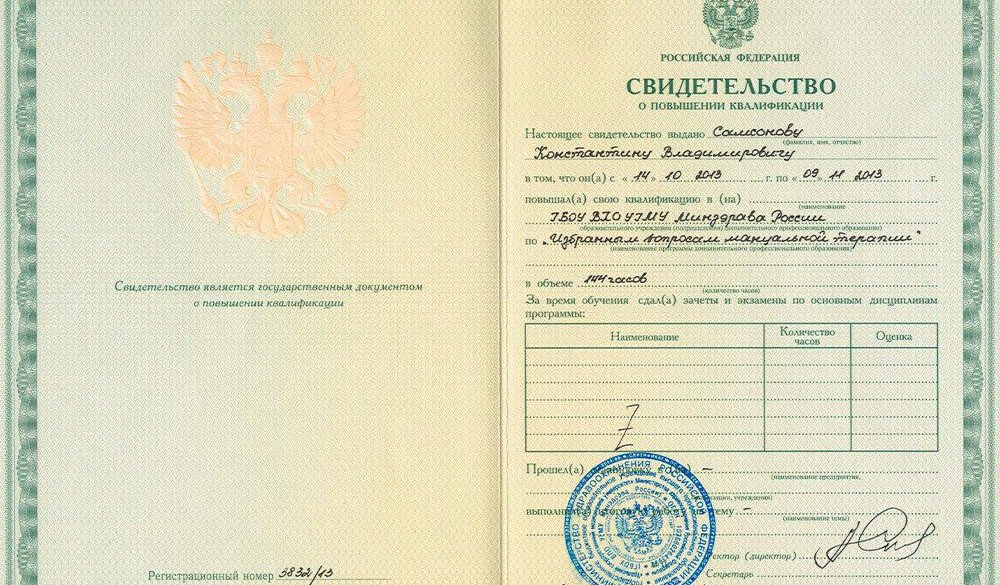 Свидетельство является государственным документом
о повышении квалификации
Регистрационный номер 3832/13
РОССИЙСКАЯ ФЕДЕРАЦИЯ
СВИДЕТЕЛЬСТВО
О ПОВЫШЕНИИ КВАЛИФИКАЦИИ
Настоящее свидетельство выдано Самсонову
(фамилия, имя, отчество)
Константину Владимировичу
в том, что он(а) с «14» 10 2013 г. по «09» 11 2013 г.
повышал(а) свою квалификацию в (на)
(наименование
ГБОУ ВПО УГМУ Минздрава России
образовательного учреждения (подразделения) дополнительного профессионального образования)
по „Избранным вопросам мануальной терапии"
(наименование программы дополнительного профессионального образования)
в объеме 144 часов
(количество часов)
За время обучения сдал(а) зачеты и экзамены по основным дисциплинам
программы:
Наименование Количество часов Оценка
Z
Прошел(а) –
(наименование предприятия,
учреждения)
выполнил(а) итоговую работу на тему –
(наименование темы)
ектор (директор)
Секретарь